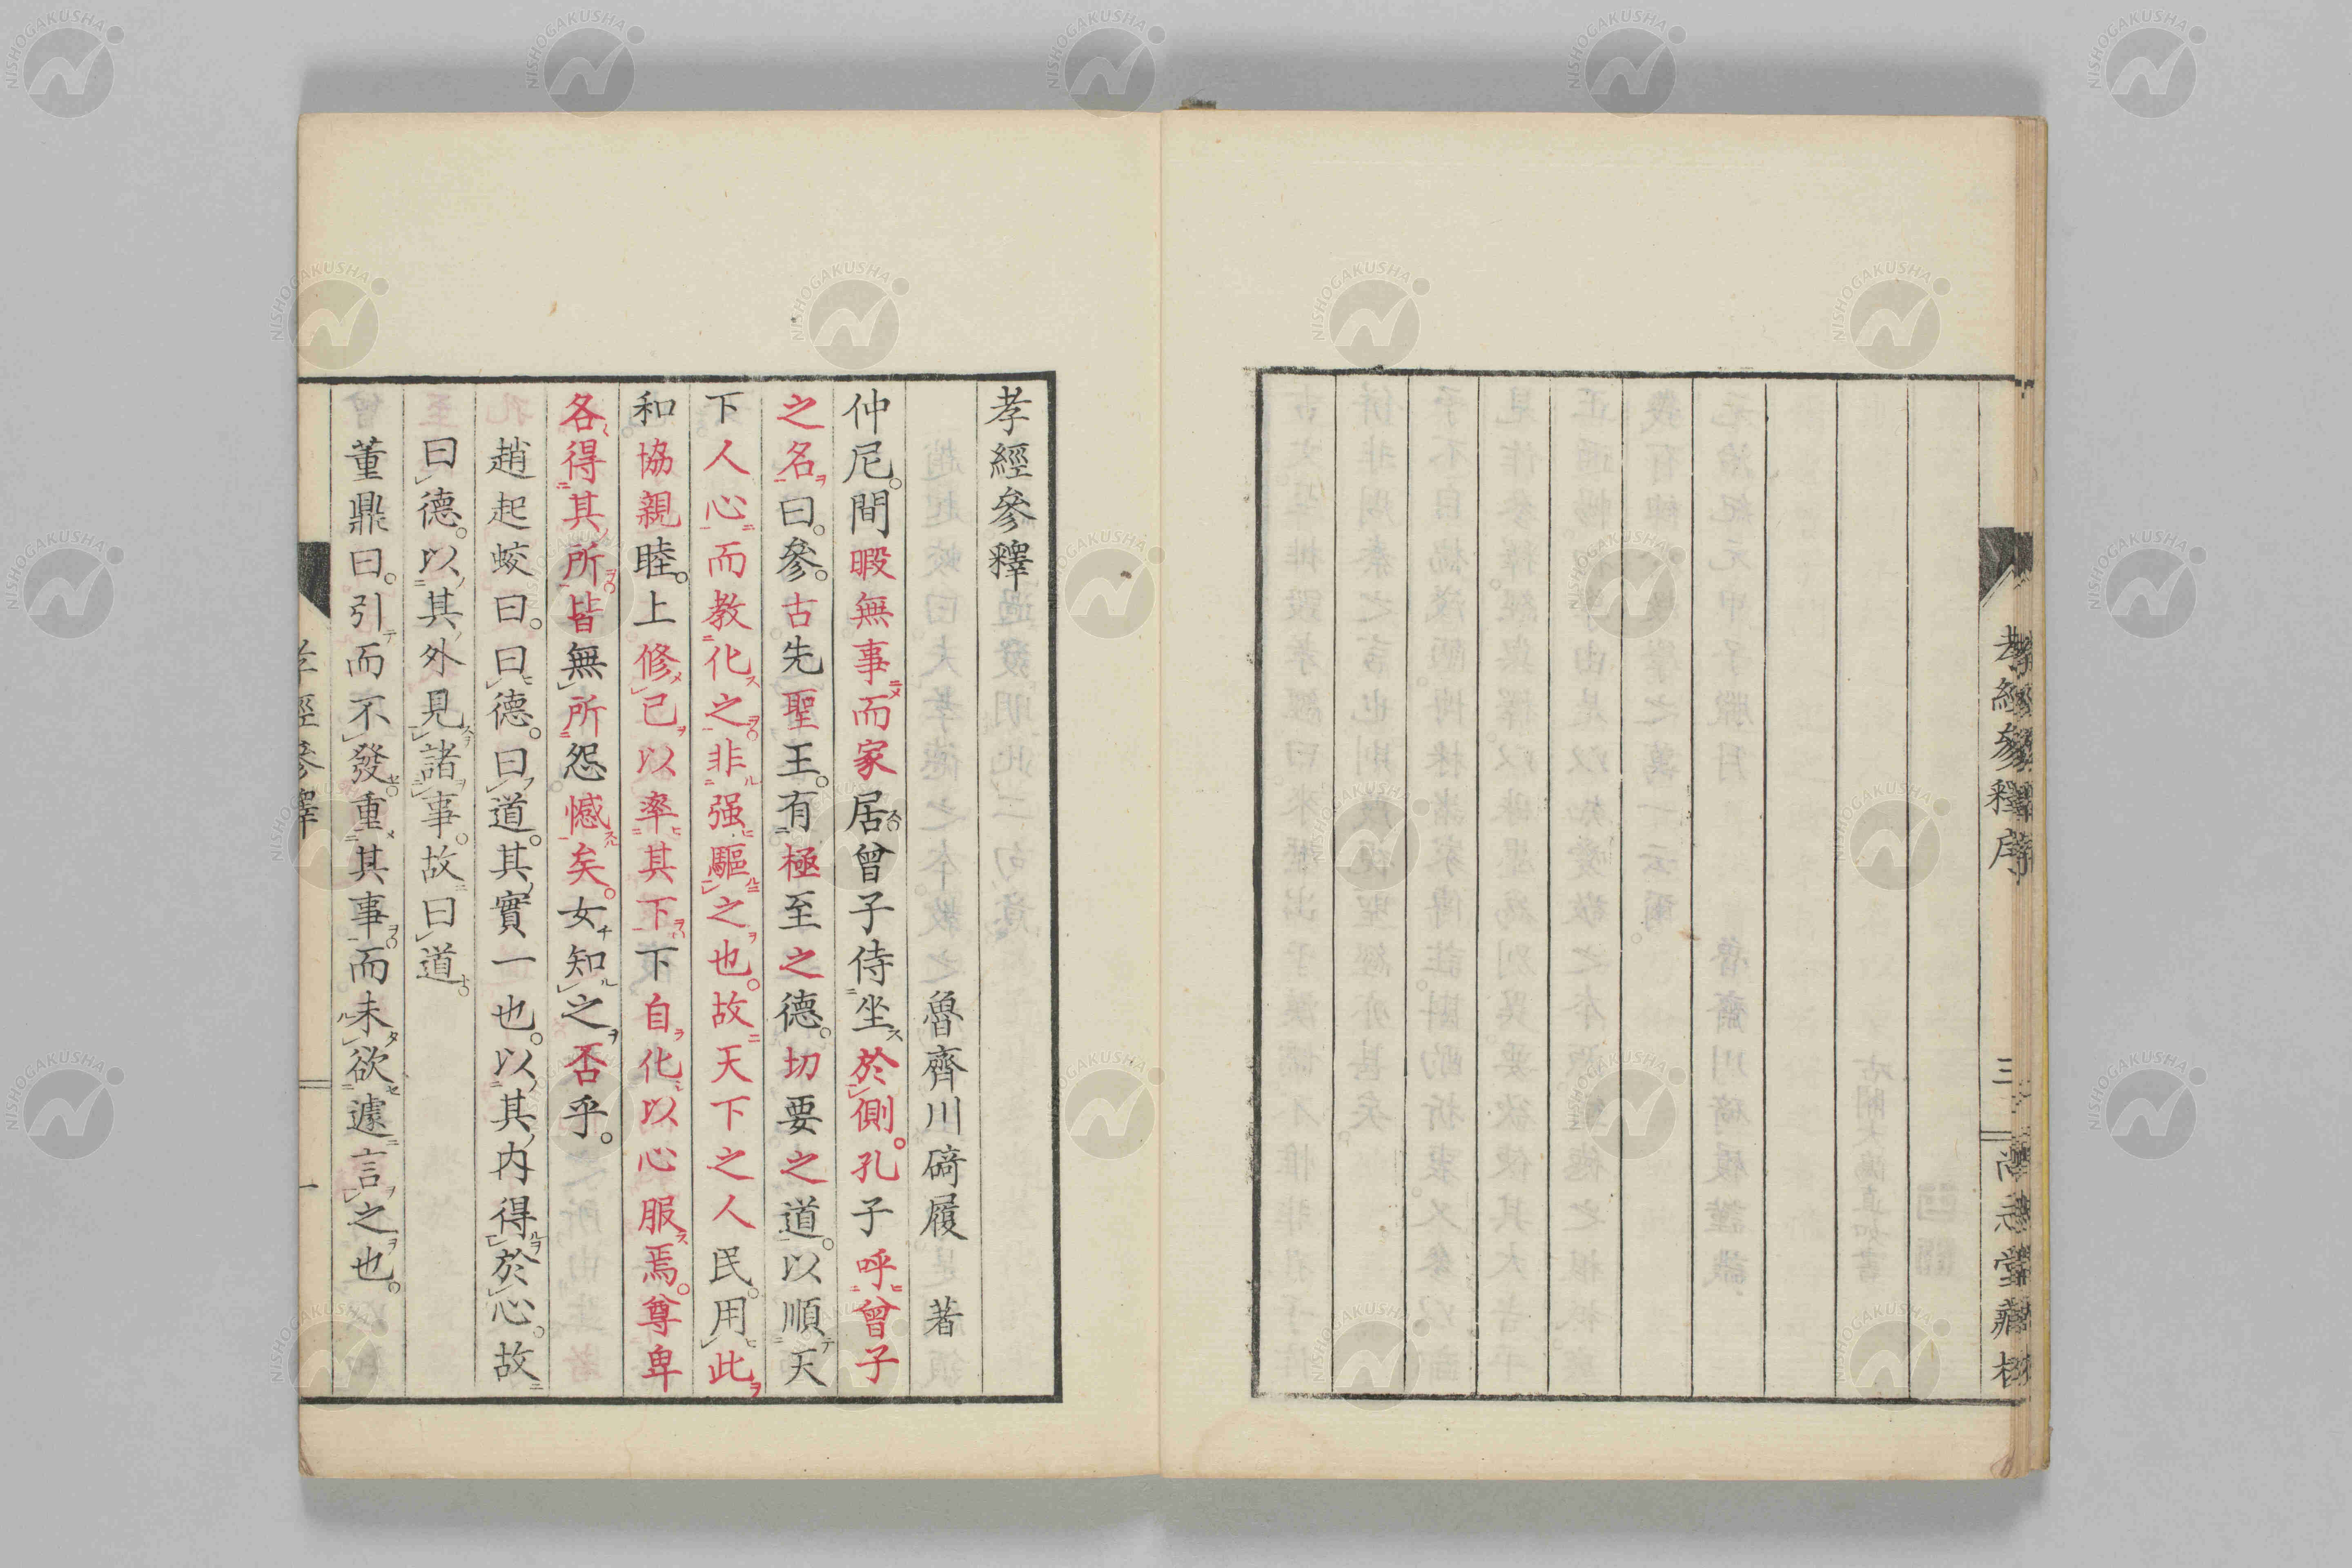 孝經參釋序
三
尚志堂藏板
孝經參釋
魯齊川碕履 著
仲尼。間暇無事而家居曾子侍坐於側。孔子呼曾子
之名曰。參。古先聖王。有極至之德。切要之道。以順天
下人心而教化之非强驅之也。故天下之人民。用此
和協親睦。上修己以率其下下自化以心服焉。尊卑
各得其所皆無所怨憾矣。女知之否乎。
趙起蛟曰。曰德。曰道。其實一也。以其內得於心。故
曰德。以其外見諸事。故曰道。
董鼎曰。引而不發。重其事而未欲遽言之也。
孝經參釋
一
NISHOGAKUSHA